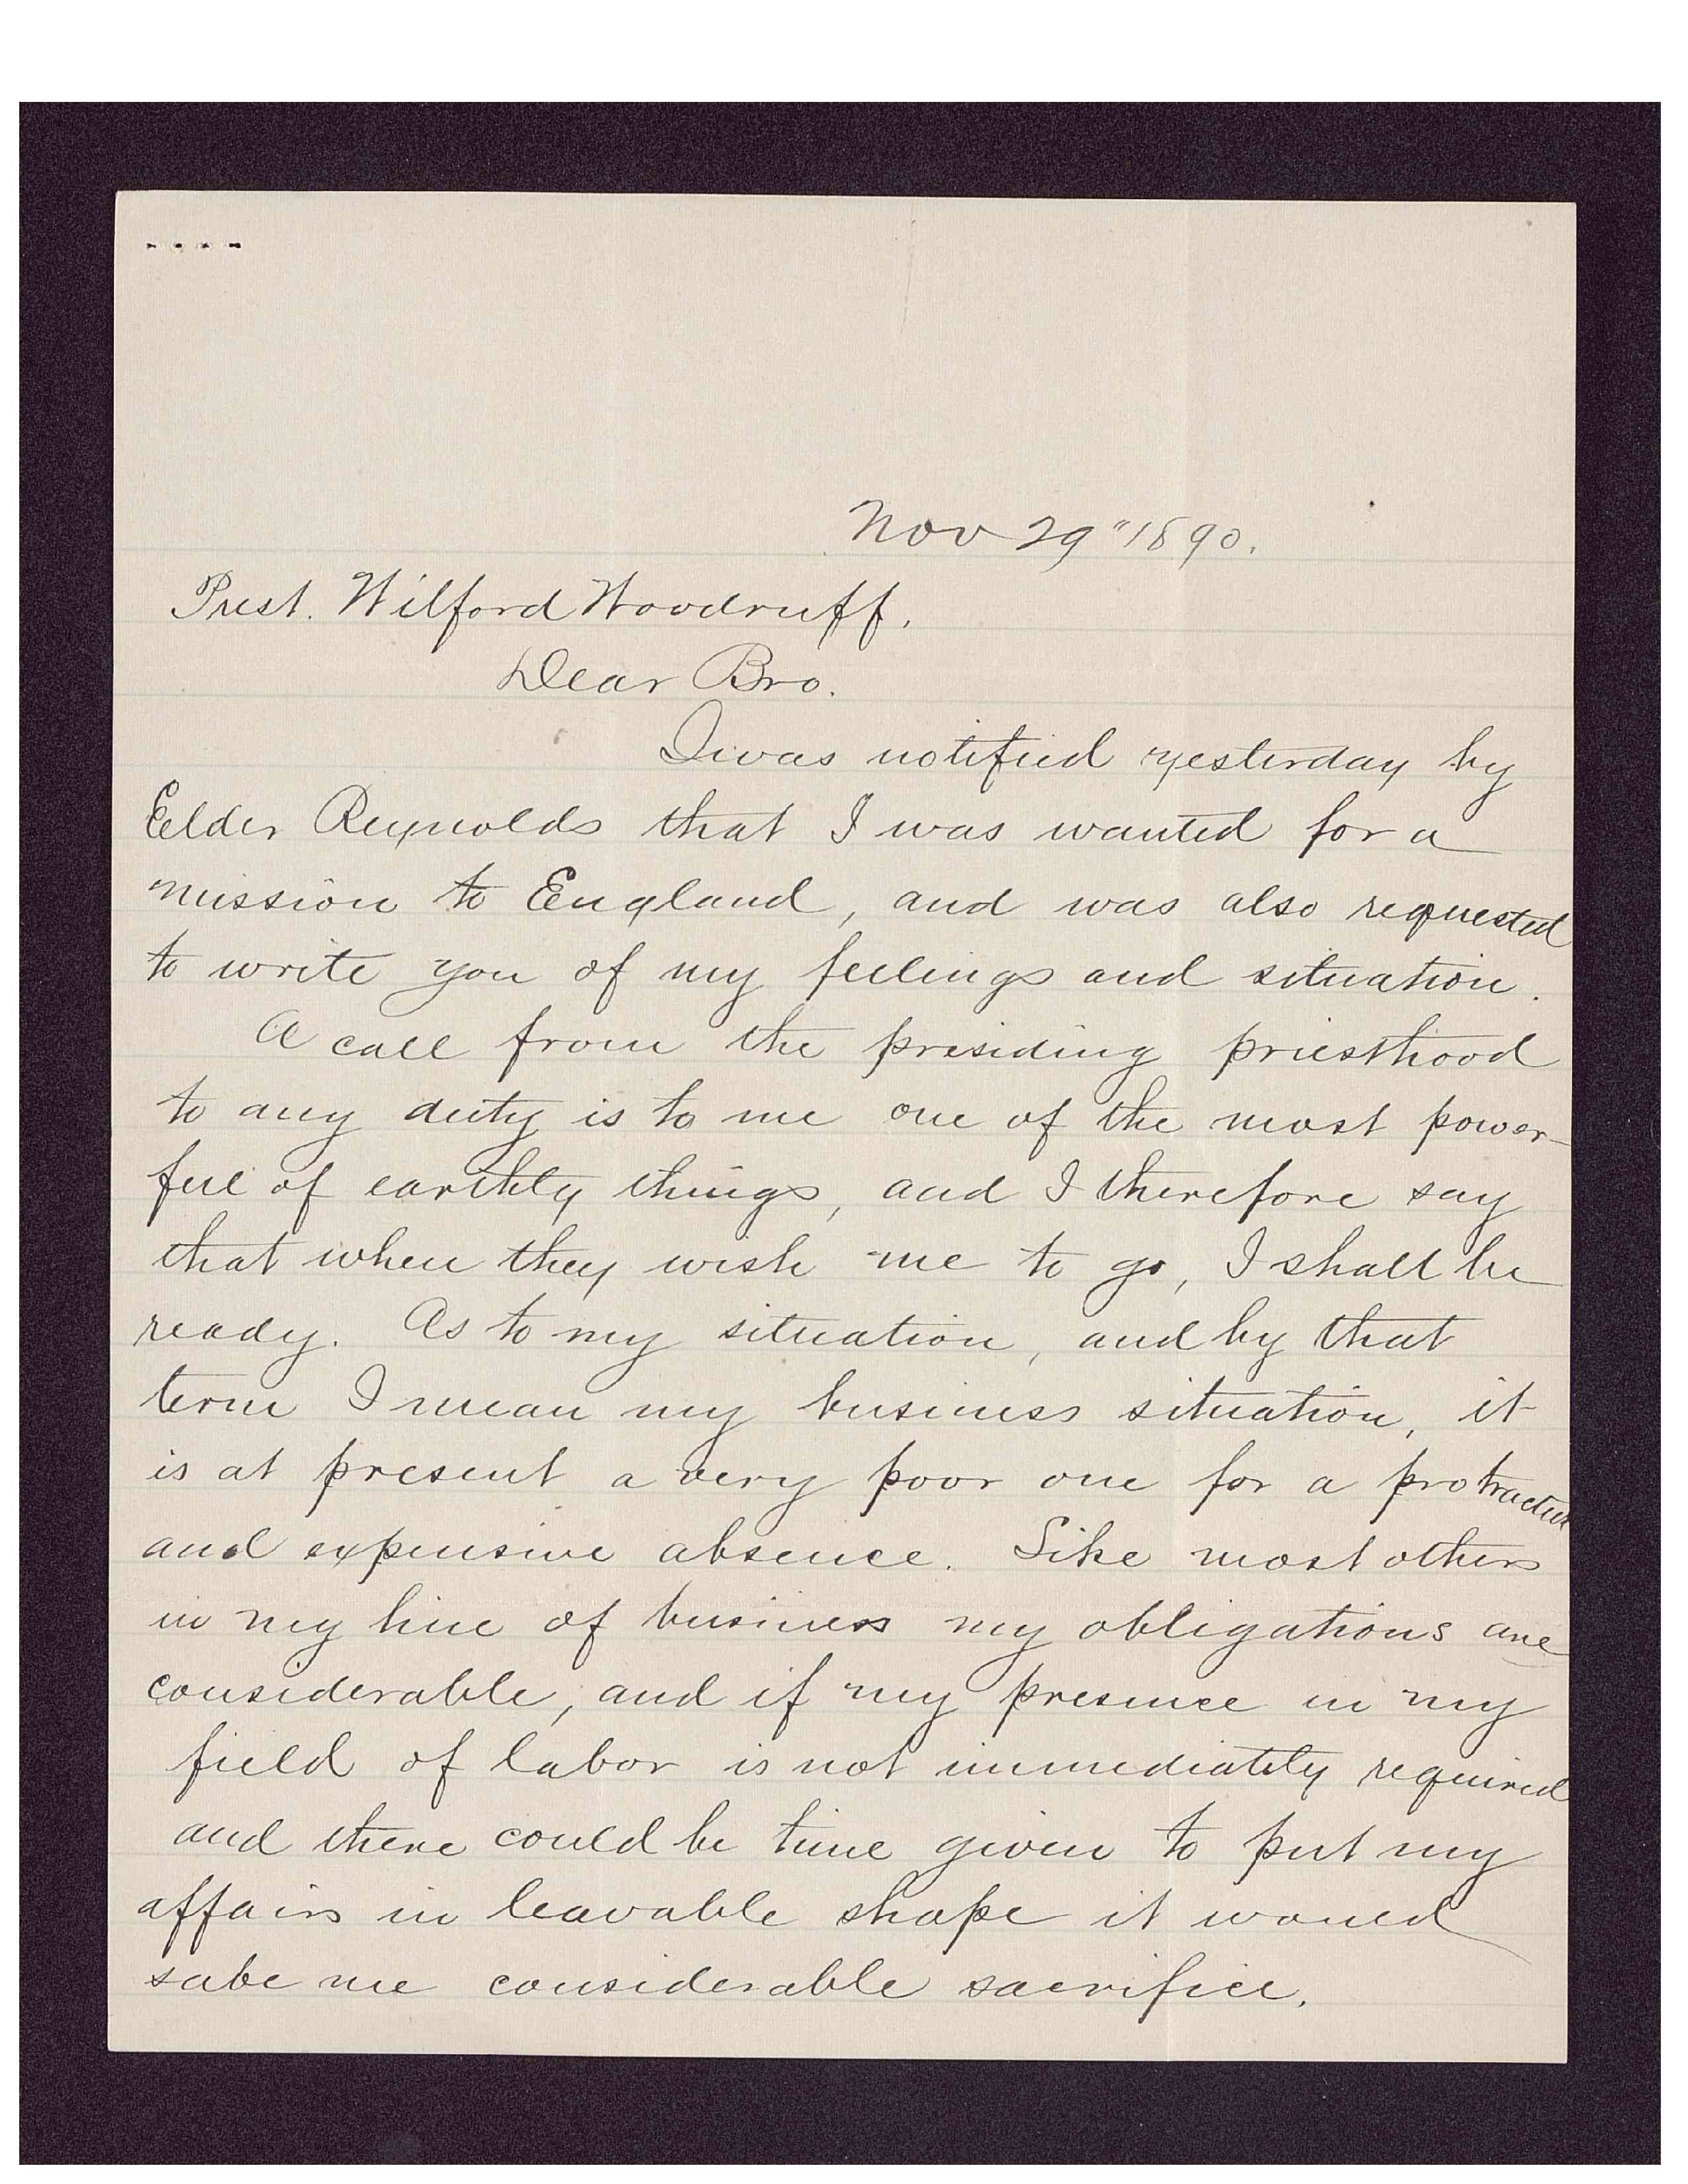 Nov 29" 1890.
Prest. Wilford Woodruff,
Dear Bro.
I was notified yesterday by
Elder Reynolds that I was wanted for a
mission to England, and was also requested
to write you of my feelings and situation.
A call from the presiding priesthood
to any duty is to me one of the most power-
ful of earthly things, and I therefore say
that when they wish me to go, I shall be
ready. As to my situation, and by that
term I mean my business situation, it
is at present a very poor one for a protracted
and expensive absence. Like most others
in my line of business my obligations are
considerable, and if my presence in my
field of labor is not immediately required
and there could be time given to put my
affairs in leavable shape it would
sabe me considerable sacrifice.